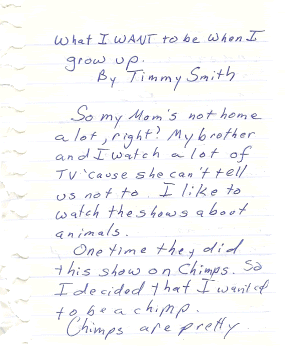 What I WANT to be when I
grow up.
By Timmy Smith
So my Mom's not home
a lot, right? My brother
and I watch a lot of
TV 'cause she can't tell
us not to. I like to
watch the shows about
animals.
One time they did
this show on Chimps. So
I decided that I wanted
to be a chimp.
Chimps are pretty